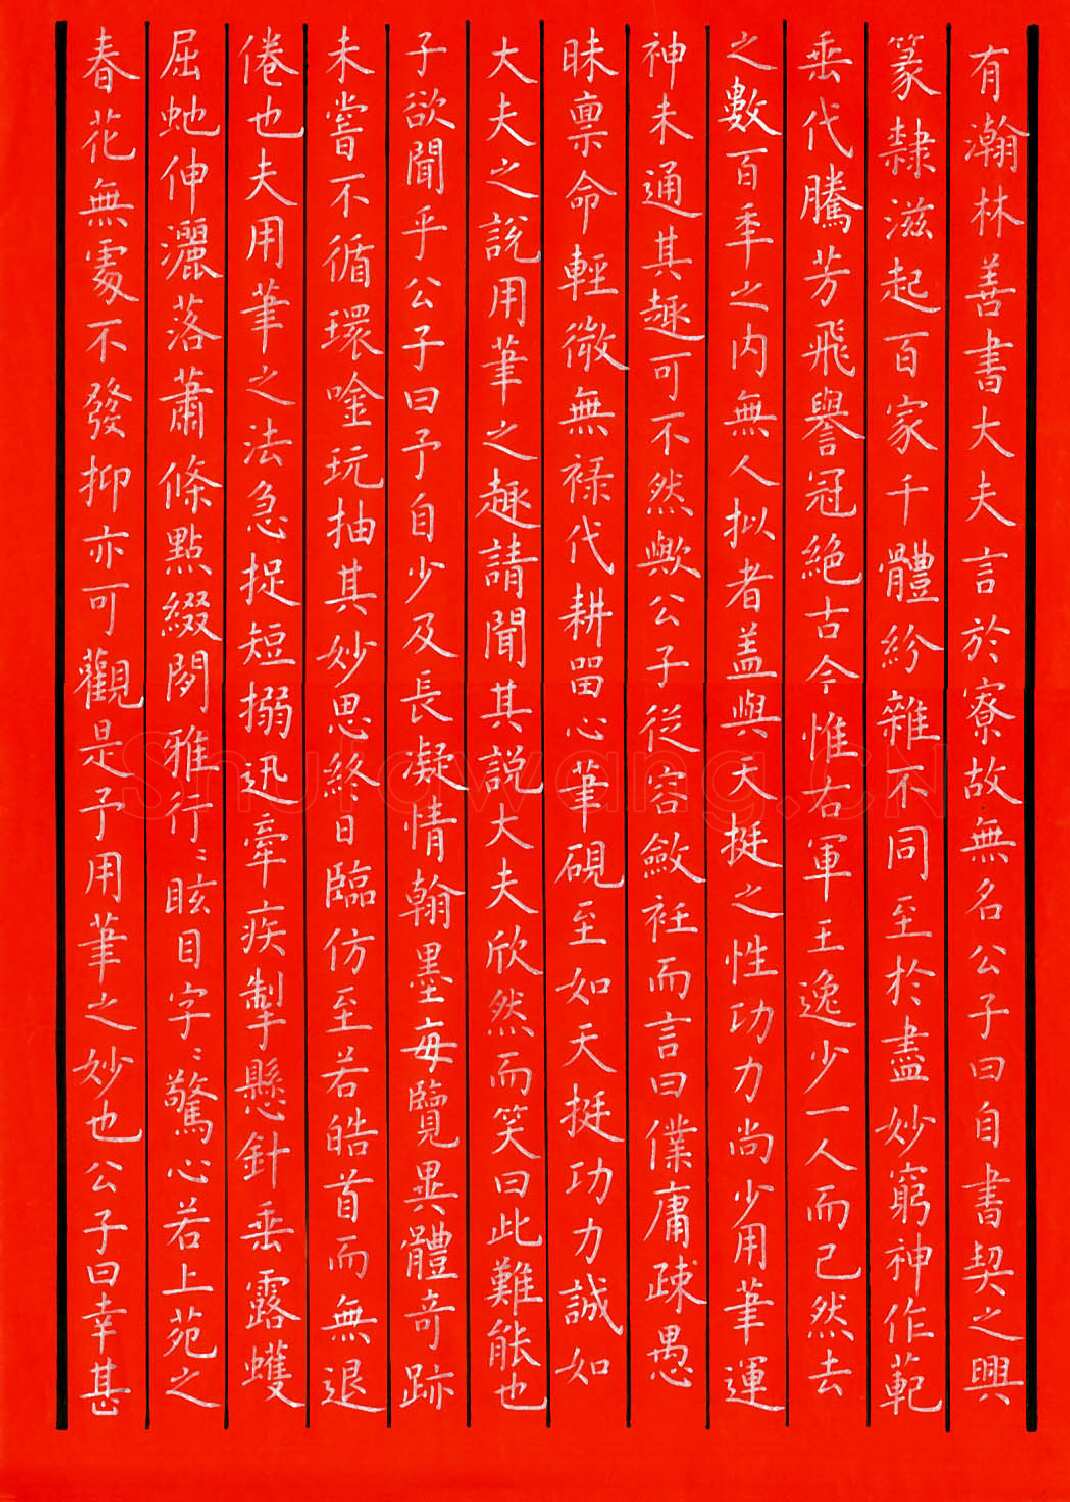 有瀚林善書大夫言於寮故無名公子曰自書契之興
篆隸滋起百家千體紛雜不同至於盡妙窮神作範
垂代騰芳飛譽冠絶古今惟右軍王逸少一人而已然去
之數百年之内無人拟者盖與天挺之性功力尚少用筆運
神未通其趣可不然歟公子從容斂衽而言曰僕庸疎愚
昧禀命輕微無祿代耕留心筆硯至如天挺功力誠如
大夫之説用筆之趣請聞其説大夫欣然而笑曰此難能也
子欲聞乎公子曰予自少及長凝情翰墨每覽異體奇跡
未嘗不循環唫玩抽其妙思終日臨仿至若皓首而無退
倦也夫用筆之法急捉短搦迅牽疾掣懸針垂露蠖
屈虵伸灑落蕭條點綴閑雅行〻眩目字〻驚心若上苑之
春花無處不發抑亦可觀是予用筆之妙也公子曰幸甚
Shufawang.CN